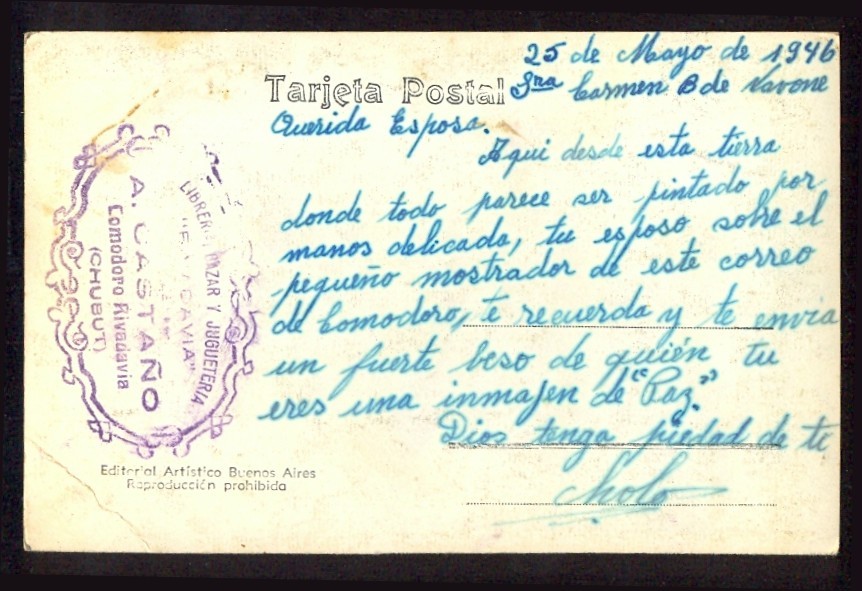 25 de Mayo de 1946
Tarjeta Postal
Sra Carmen B de Navone
Querida Esposa.
Aqui desde esta tierra
donde todo parece ser pintado por
manos delicada, tu esposo sobre el
pequeño mostrador de este correo
de Comodoro, te recuerda y te envia
un fuerte beso de quién tu
eres una inmajen de "Paz."
Dios tenga piedad de te
Cholo
LIBRERIA BAZAR Y JUGUETERIA
A. CASTAÑO
Comodoro Rivadavia
(CHUBUT)
Editorial Artístico Buenos Aires
Reproducción prohibida